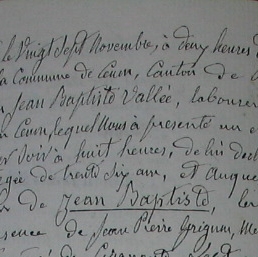 le Vingt Sept Novembre, à deux heures d
la Commune de Ceum, Canton de
Jean Baptiste Vallée, laboure
Ceum, lequel Nous a présenté un e
Soir à huit heures, de lui decl
agée de trente Six ans, et Auque
de Jean Baptiste, les
sence de Jean Pierre Grignon, Me